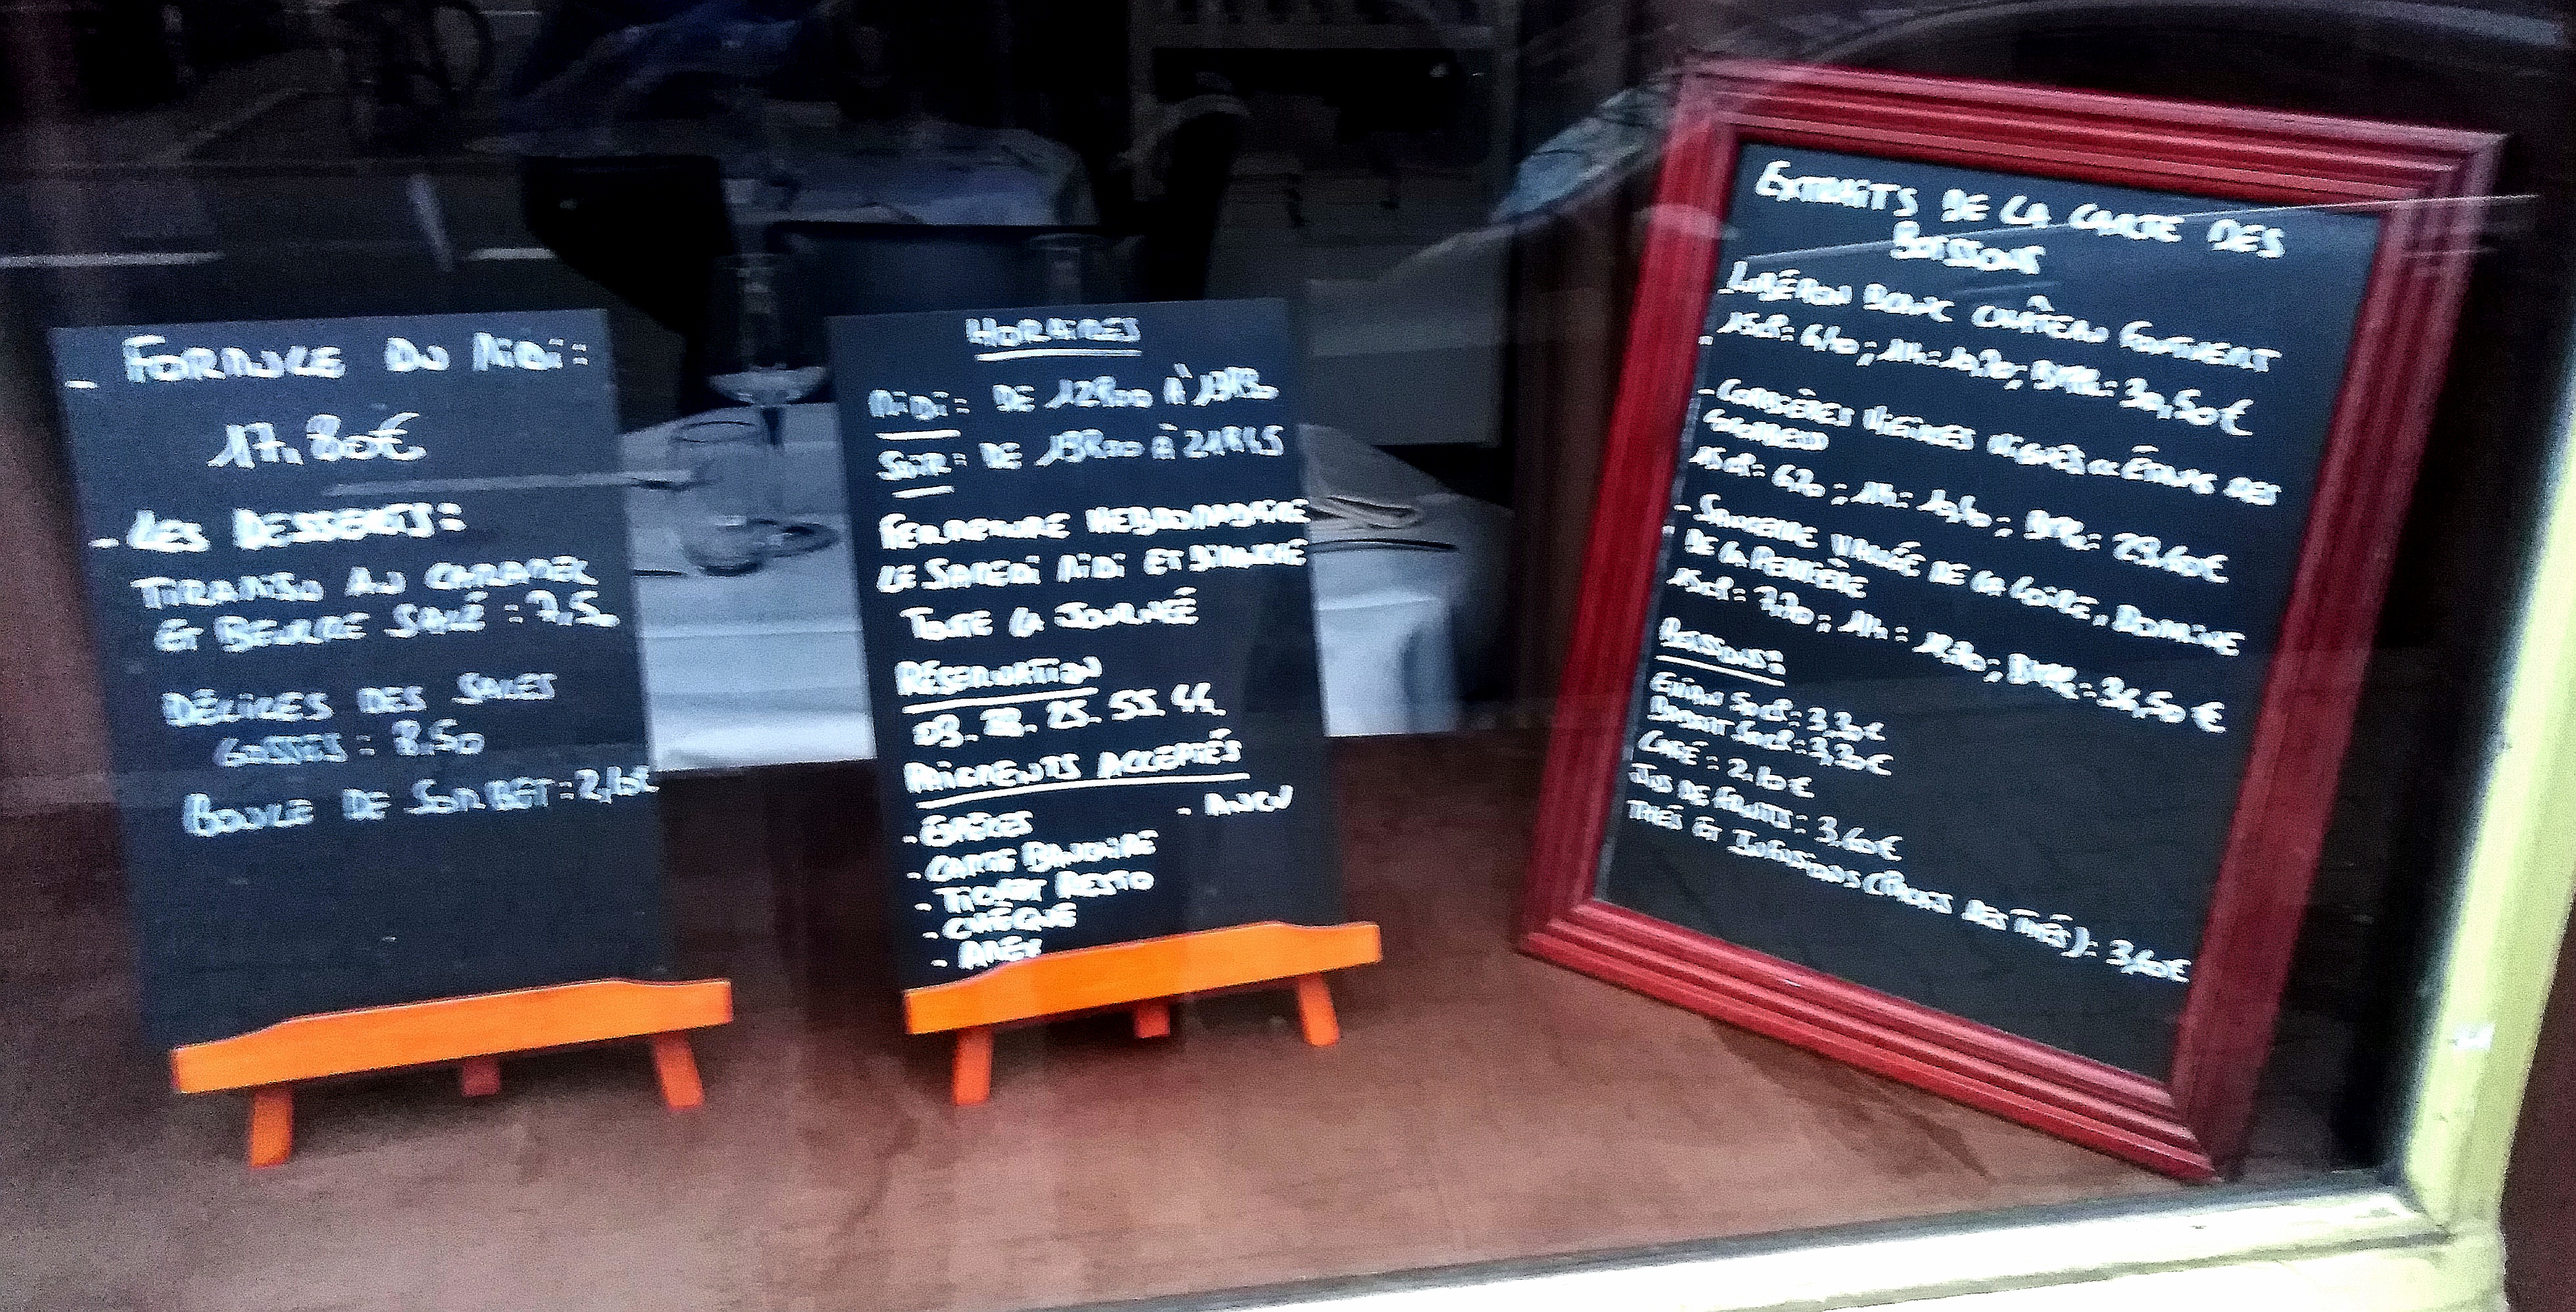 - FORMULE DU MIDI:
17,80€
- LES DESSERTS:
TIRAMISU AU CARAMEL
ET BEURRE SALÉ : 7,50
DÉLICES DES SALES
GOSSES : 8,50
BOULE DE SORBET : 2,10€
HORAIRES
MIDI: DE 12H00 À
SOIR: DE 19H00 À 21H45
FERMETURE HEBDOMADAIRE
LE SAMEDI MIDI ET DIMANCHE
TOUTE LA JOURNÉE
RÉSERVATION
55. 44.
PAIEMENTS ACCEPTÉS
- ESPÈCES
- ANCV
- CARTE BANCAIRE
- TICKET RESTO
- CHÈQUE
- AMEX
EXTRAITS DE LA CARTE DES
BOISSONS
- LUBÉRON BLANC CHÂTEAU
15cl: ; 30,50€
- CORBIÈRES VIEILLES VIGNES
15cl: 6,20 ; 29,40€
- SANCERRE VALLÉE DE LA LOIRE, DOMAINE
DE LA PERRIÈRE
15cl: 7,70 ; 34,50€
BOISSONS:
50cl: 3,30€
BADOIT 50cl: 3,30€
CAFÉ : 2,10€
JUS DE FRUITS: 3,60€
THÉS ET INFUSIONS (PALAIS DES THÉS): 3,60€